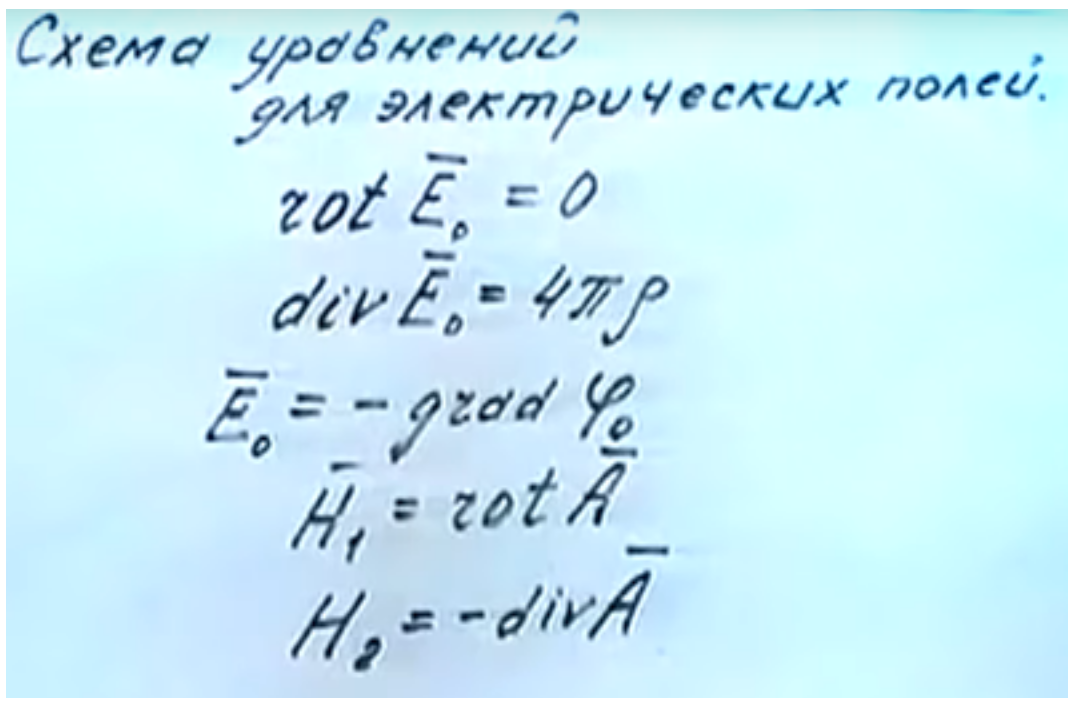 Схема уравнений
для электрических полей.
rot E̅₀ = 0
div E̅₀ = 4πρ
E̅₀ = - grad φ₀
H̅₁ = rot A̅
H₂ = - div A̅